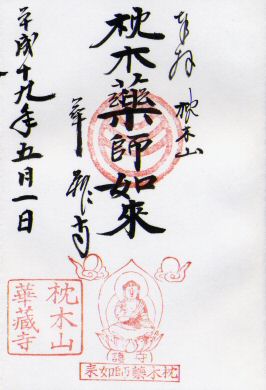 奉拝
枕木山
枕木薬師如来
華蔵寺
平成十九年五月一日
枕木山
華藏寺
守護
枕木藥師如来